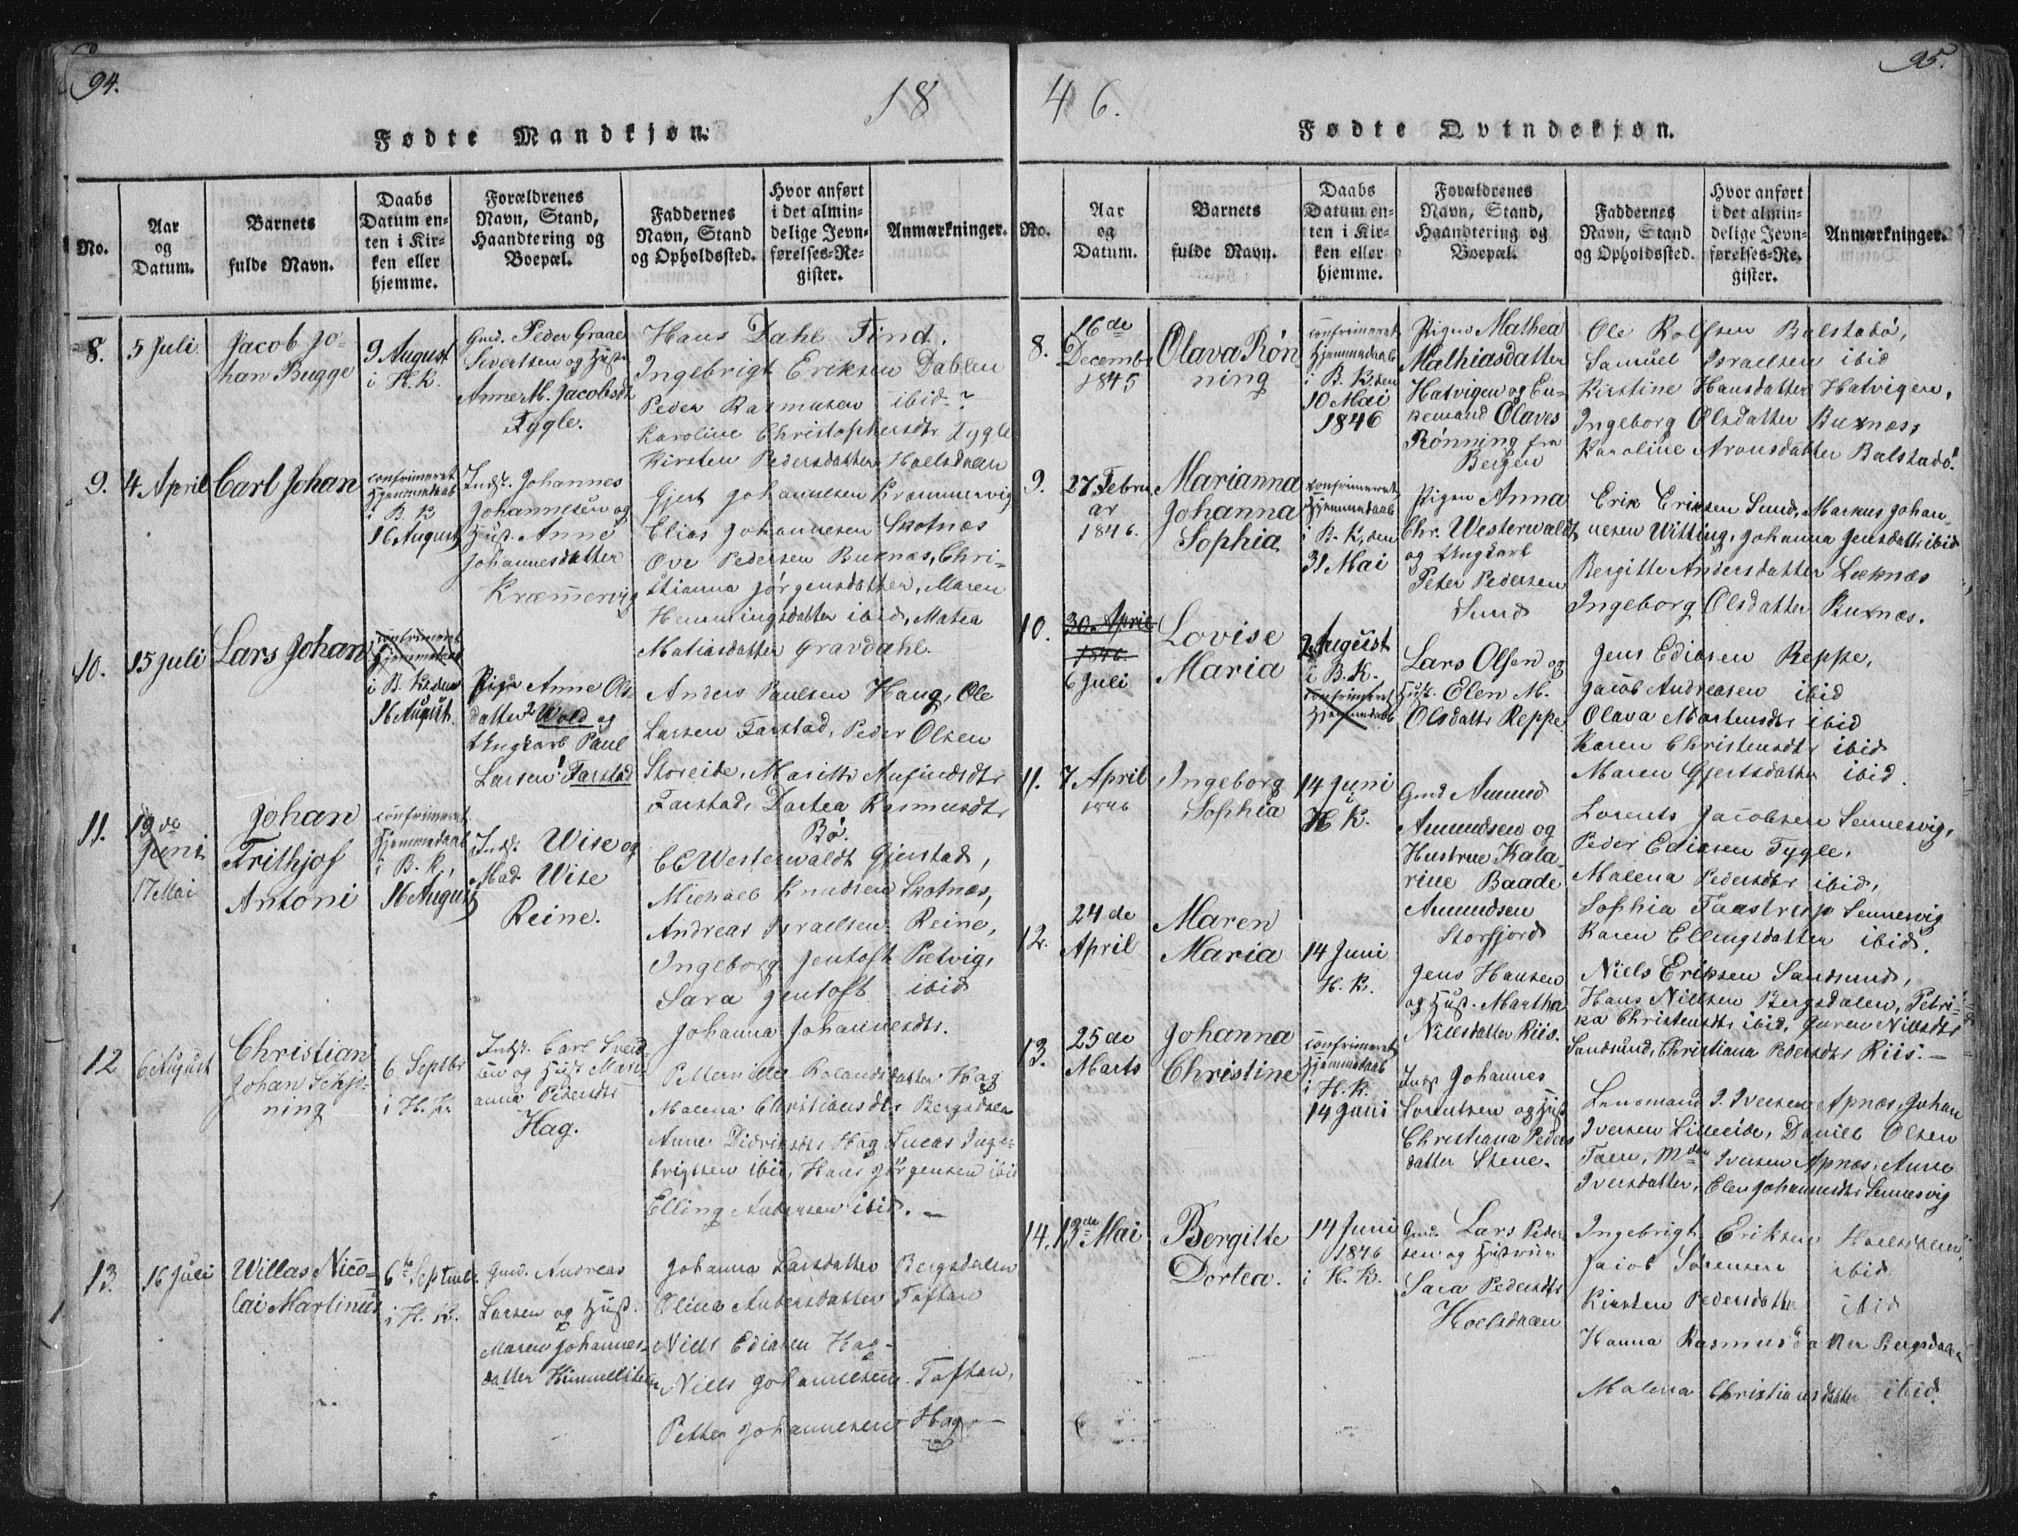 94.
18
Fødte Mandkjøn.
No.
Aar
og
Datum.
Barnets
fulde Navn.
Daabs
Datum en-
ten i Kir-
ken eller
hjemme.
Forældrenes
Navn, Stand,
Haandtering og
Boepæl.
Faddernes
Navn, Stand
og Opholdssted.
Hvor anført
i det almin-
delige Jevn-
førelses-Re-
gister.
Anmærkninger.
8.
5 Juli
Jacob Jo-
han Bugge
9 August
i H.K.
Gmd. Peder Graae
Sivertsen og Hust
Anne M. Jacobsdt
Tygle.
Hans Dahl Find.
Ingebrigt Eriksen Dahlen
Peder Rasmusen ibid.?
Karoline Christophersdtr Tygle
Kirsten Pedersdatter Hoelsdræn
9.
4 April
Carl Johan
confirmeret
Hjemmedaab
i B.K
16 August
Indst. Johannes
Johannesen og
Hust. Anne
Johannesdatter
Kræmmervig
Gjert Johannesen Kræmmervig
Elias Johannesen Skotnæs
Ove Pedersen Buxnæs, Chri-
stianna Jørgensdatter, Maren
Hemmingsdatter ibid, Matea
Matiasdatter Gravdahl.
10.
15 Juli
Lars Johan
confirmeret
Hjemmedaab
i B. K. den
16 August.
Pigen Anne Ols
datter Wold og
Ungkarl Paul
Larsen Farstad
Anders Paulsen Haug, Ole
Larsen Farstad, Peder Olsen
Storeide, Marith Anfindsdtr
Farstad, Dortea Rasmusdtr
Bø.
11.
19de
Juni
17 Mai
Johan
Frithjof
Antoni
confirmeret
Hjemmedaab
i B. K,
16 August
Indst. Wise og
Mad. Wise
Reine.
CC Westerwaldt Gjerstad,
Michael Knudsen Skotnæs,
Andreas Israelsen Reine,
Ingeborg Jentoft Petvig,
Sara Jentoft ibid
Johanna Johannesdtr.
12
6 August
Christian
Johan Schjø-
ning
6 Septbr
i H.K.
Indst. Carl Svend
sen og Hust Mari
anna Pedersdtr
Hag.
Petternille Rolandsdatter Hag
Malena Christiansdtr Bergsdalen
Anne Didriksdtr Hag Lucas Inge-
brigtsen ibid, Hans Jørgensen ibid
Elling Andersen ibid. —
13.
16 Juli
Willas Nico-
lai Martinus
6te Septemb.
i H. K.
Gmd. Andreas
Larsen og Hust.
Maren Johannes-
datter Himmelsteen
Johanna Larsdatter Bergsdalen
Olina Andersdatter Taftan
Niels Ediasen Hag
Niels Johannesen Taftan,
Petter Johannesen Hag —
95.
46.
Fødte Qvindekjøn.
No.
Aar
og
Datum.
Barnets
fulde Navn.
Daabs
Datum en-
ten i Kir-
ken eller
hjemme.
Forældrenes
Navn, Stand,
Haandtering og
Boepæl.
Faddernes
Navn, Stand
og Opholdssted.
Hvor anført
i det almin-
delige Jevn-
førelses-Re-
gister.
Anmærkninger.
8.
16de
Decembr
1845
Olava Røn
ning
confirmeret
Hjemmedaab
i B. K. den
10 Mai
1846
Pigen Mathea
Mathiasdatter
Hatvigen og En-
kemand Olaves
Rønning fra
Bergen
Ole Rolfsen Balstadø,
Samuel Israelsen ibid
Kirstine Hansdatter Hatvigen,
Ingeborg Olsdatter Buxnæs,
Karoline Aronsdatter Balstadø.
9.
27 Febru
ar
1846.
Marianna
Johanna
Sophia
confirmeret
Hjemmedaab
i B. K, den
31 Mai
Pigen Anna
Chr. Westerwaldt
og Ungkarl
Peter Pedersen
Sund
Erik Eriksen Sund, Markus Johan-
nesen Witting, Johanna Jensdattr ibid
Bergitte Andersdatter Leknæs
Ingeborg Olsdatter Buxnæs.
10.
30 April
1846.
6 Juli
Lovise
Maria
2 August
i B.K.
confirmeret
Hjemmedaab
Lars Olsen og
Hust. Elen M.
Olsdattr Reppe
Jens Ediasen Reppe,
Jacob Andreasen ibid
Olava Mortensdtr ibid
Karen Christensdtr ibid
Maren Gjertsdatter ibid.
11.
7 April
1846
Ingeborg
Sophia
14 Juni
i
H. K.
Gmd Amund
Amundsen og
Hustrue Kata-
rine Baade
Amundsen
Storfjord
Lorents Jacobsen Sennesvig,
Peder Ediasen Tygle,
Malena Pedersdtr ibid,
Sophia Faastrup Sennesvig
Karen Ellingsdatter ibid.
12.
24 de
April
Maren
Maria
14 Juni
H. K.
Jens Hansen
og Hust. Martha
Nilsdatter Riis.
Niels Eriksen Sandsund,
Hans Nielsen Bergsdalen, Petri-
ka Christensdtr ibid, Guren Nilsdtr
Sandsund, Christiana Pedersdtr Riis. —
13.
25 de
Marts
Johanna
Christine
confirmeret
Hjemmedaab
i H. K.
14 Juni
Indst Johannes
Lorentsen og Hust
Christiana Peders
datter Stene.
Lensmand I. Iversen Apnæs, Johan
Iversen Lilleeide, Daniel Olsen
Taen, Mdm Iversen Apnæs, Anne
Iversdatter, Elen Johannesdtr Sennesvig
14.
13de Mai
Bergitte
Dortea.
14 Juni
1846
i H. K.
Gmd. Lars Peder
sen og Hustrue
Sara Pedersdtr
Hoelsdræn
Ingebrigt Eriksen Hoelsdræn
Jacob Sørensen ibid
Kirsten Pedersdatter ibid
Hanna Rasmusdatter Bergsdalen
Malena Christiansdatter ibid.